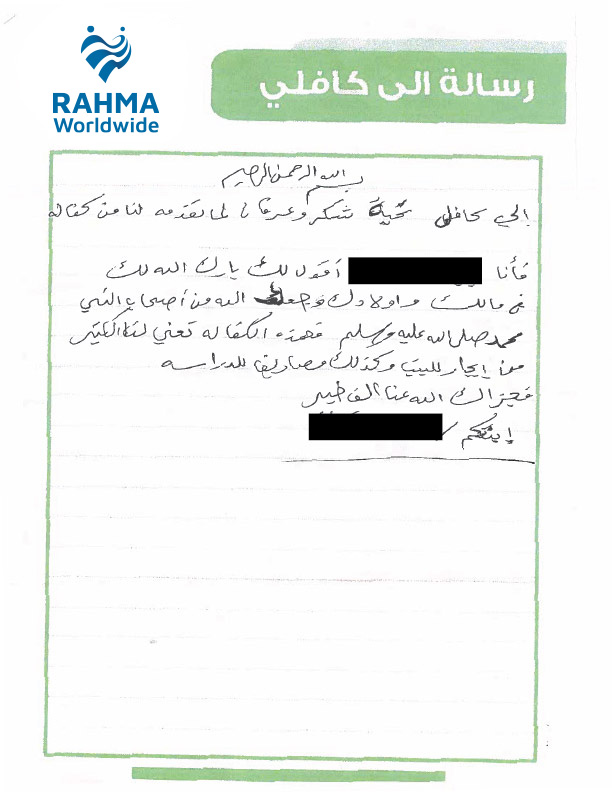 RAHMA
Worldwide
رسالة الى كافلي
بسم الله الرحمن الرحيم
إلى كافلي تحية شكر وعرفان لما تقدمه لنا من كفاله
فأنا أقول لك بارك الله لك
في مالك واولادك وجعلك الله من أصحاب النبي
محمد صلى الله عليه وسلم فهذه الكفاله تعني لنا الكثير
من إيجار للبيت وكذلك مصاريف للدراسه
فجزاك الله عنا الف خير
إبنتكم